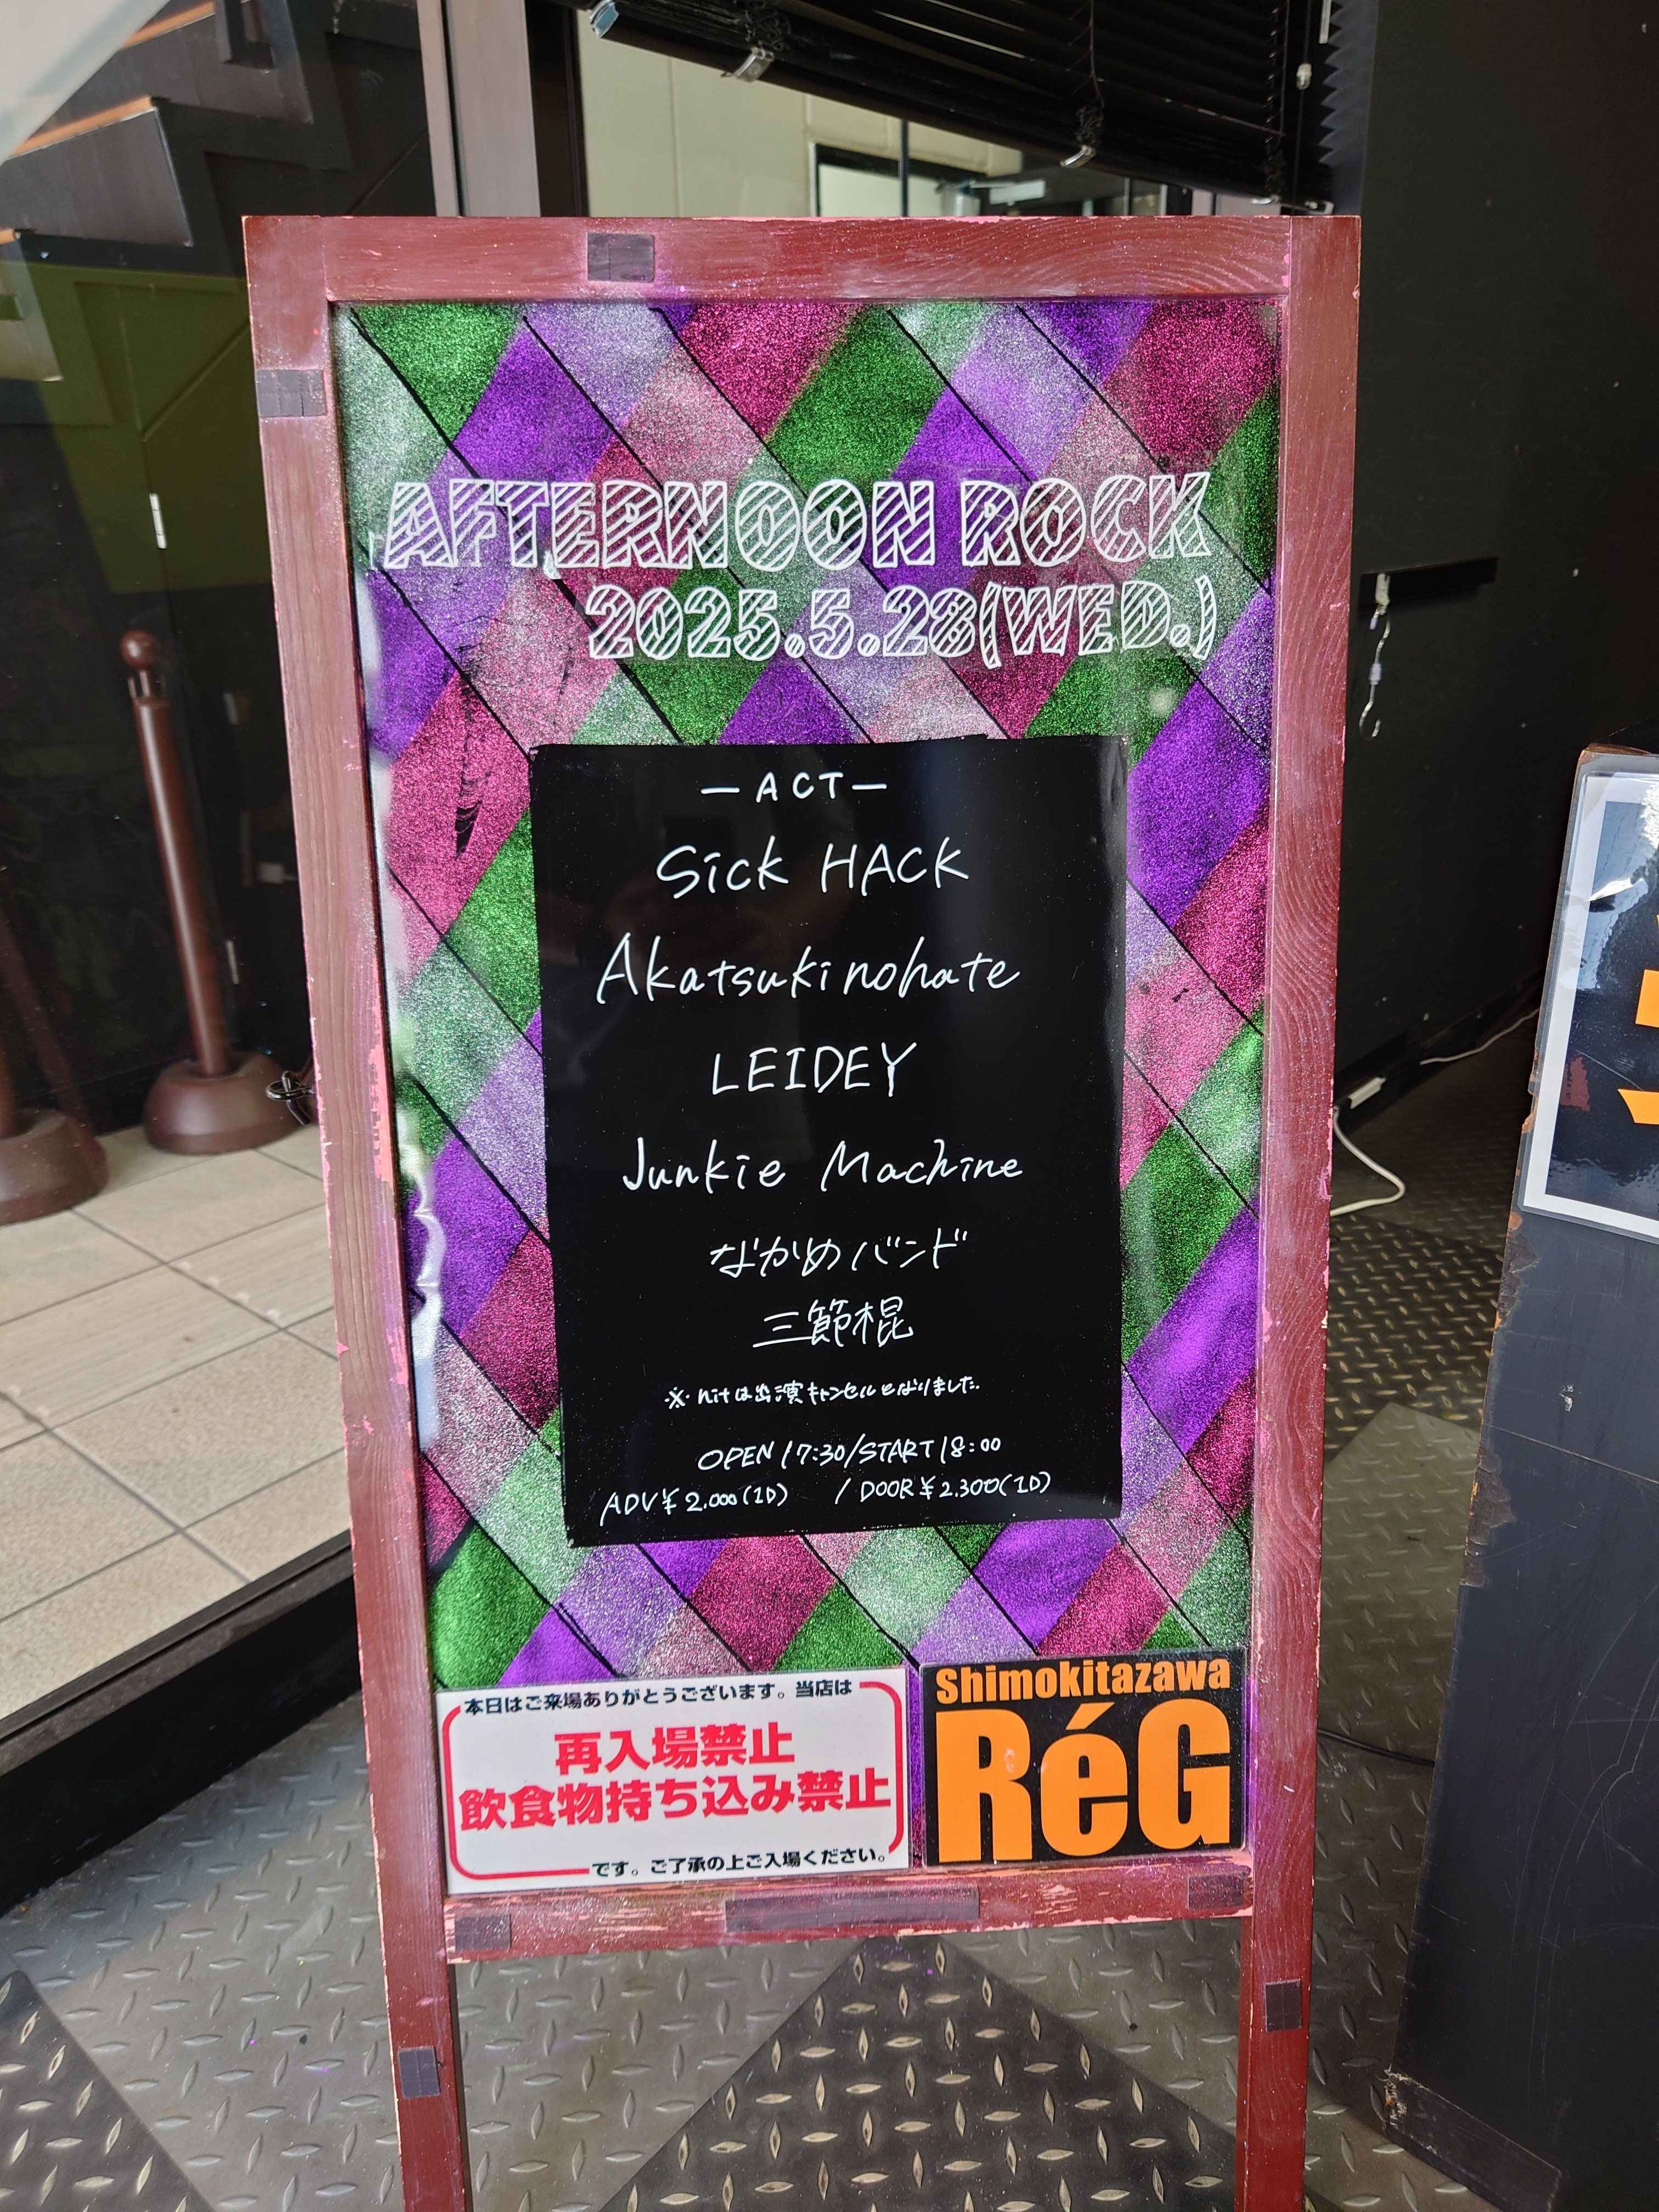 AFTERNOON ROCK
2025.5.28(WED.)
—ACT—
Sick HACK
Akatsukinohate
LEIDEY
Junkie Machine
なかめバンド
三節棍
※nitは出演キャンセルとなりました.
OPEN 17:30/START 18:00
ADV¥2.000(1D) / DOOR¥2.300(1D)
本日はご来場ありがとうございます。当店は
再入場禁止
飲食物持ち込み禁止
です。ご了承の上ご入場ください。
Shimokitazawa
RéG